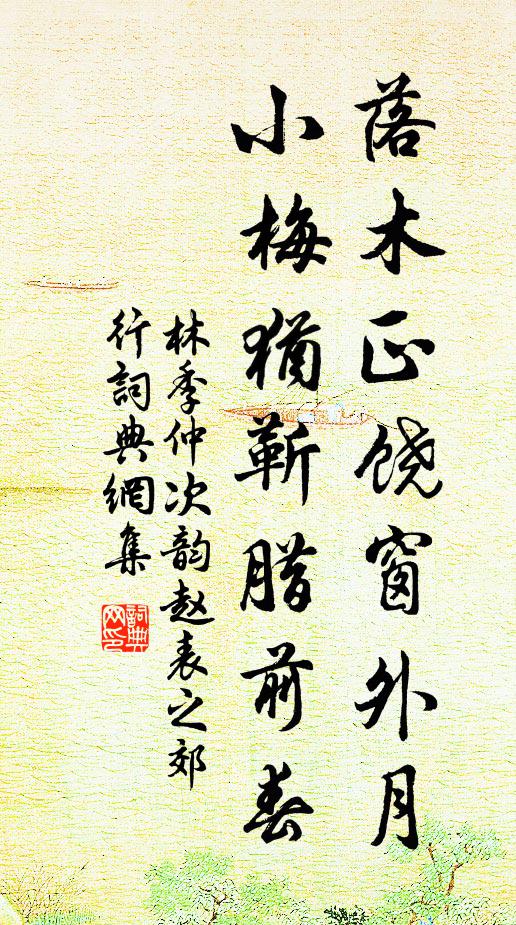 落木正饶窗外月
小梅猶靳腊前春
林季仲次韵赵表之郊
行詞典網集
詞典
网印